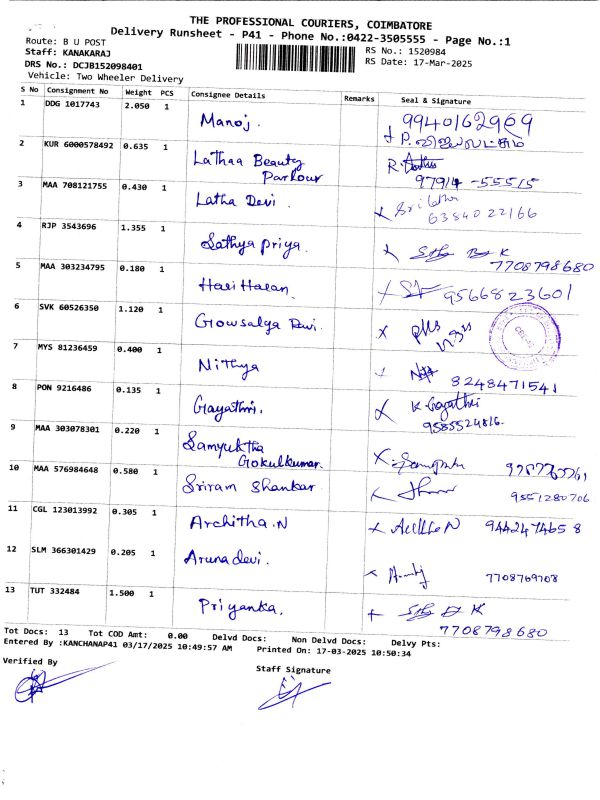 THE PROFESSIONAL COURIERS, COIMBATORE
Delivery Runsheet - P41 - Phone No.:0422-3505555 - Page No.:1
Route: B U POST
RS No.: 1520984
Staff: KANAKARAJ
RS Date: 17-Mar-2025
DRS No.: DCJB152098401
Vehicle: Two Wheeler Delivery
S No Consignment No Weight PCS Consignee Details Remarks Seal & Signature
1 DDG 1017743 2.050 1 Manoj. 9940162969
P. விஜயலட்சுமி
2 KUR 6000578492 0.635 1 Lathaa Beauty Parlour R.
97914-55515
3 MAA 708121755 0.430 1 Latha Devi.
6384022166
4 RJP 3543696 1.355 1 Sathya priya. K
7708798680
5 MAA 303234795 0.180 1 Hari Haran. 9566823601
6 SVK 60526350 1.120 1 Gowsalya Devi.
7 MYS 81236459 0.400 1 Nithya
8248471541
8 PON 9216486 0.135 1 Gayathri. K. Gayathri
9585524816.
9 MAA 303078301 0.220 1 Samyuktha Gokulkumar.
10 MAA 576984648 0.580 1 Sriram Shankar
9551280706
11 CGL 123013992 0.305 1 Architha.N 9442474658
12 SLM 366301429 0.205 1 Aruna devi.
7708769708
13 TUT 332484 1.500 1 Priyanka. K
7708798680
Tot Docs: 13 Tot COD Amt: 0.00 Delvd Docs: Non Delvd Docs: Delvy Pts:
Entered By :KANCHANAP41 03/17/2025 10:49:57 AM Printed On: 17-03-2025 10:50:34
Verified By
Staff Signature